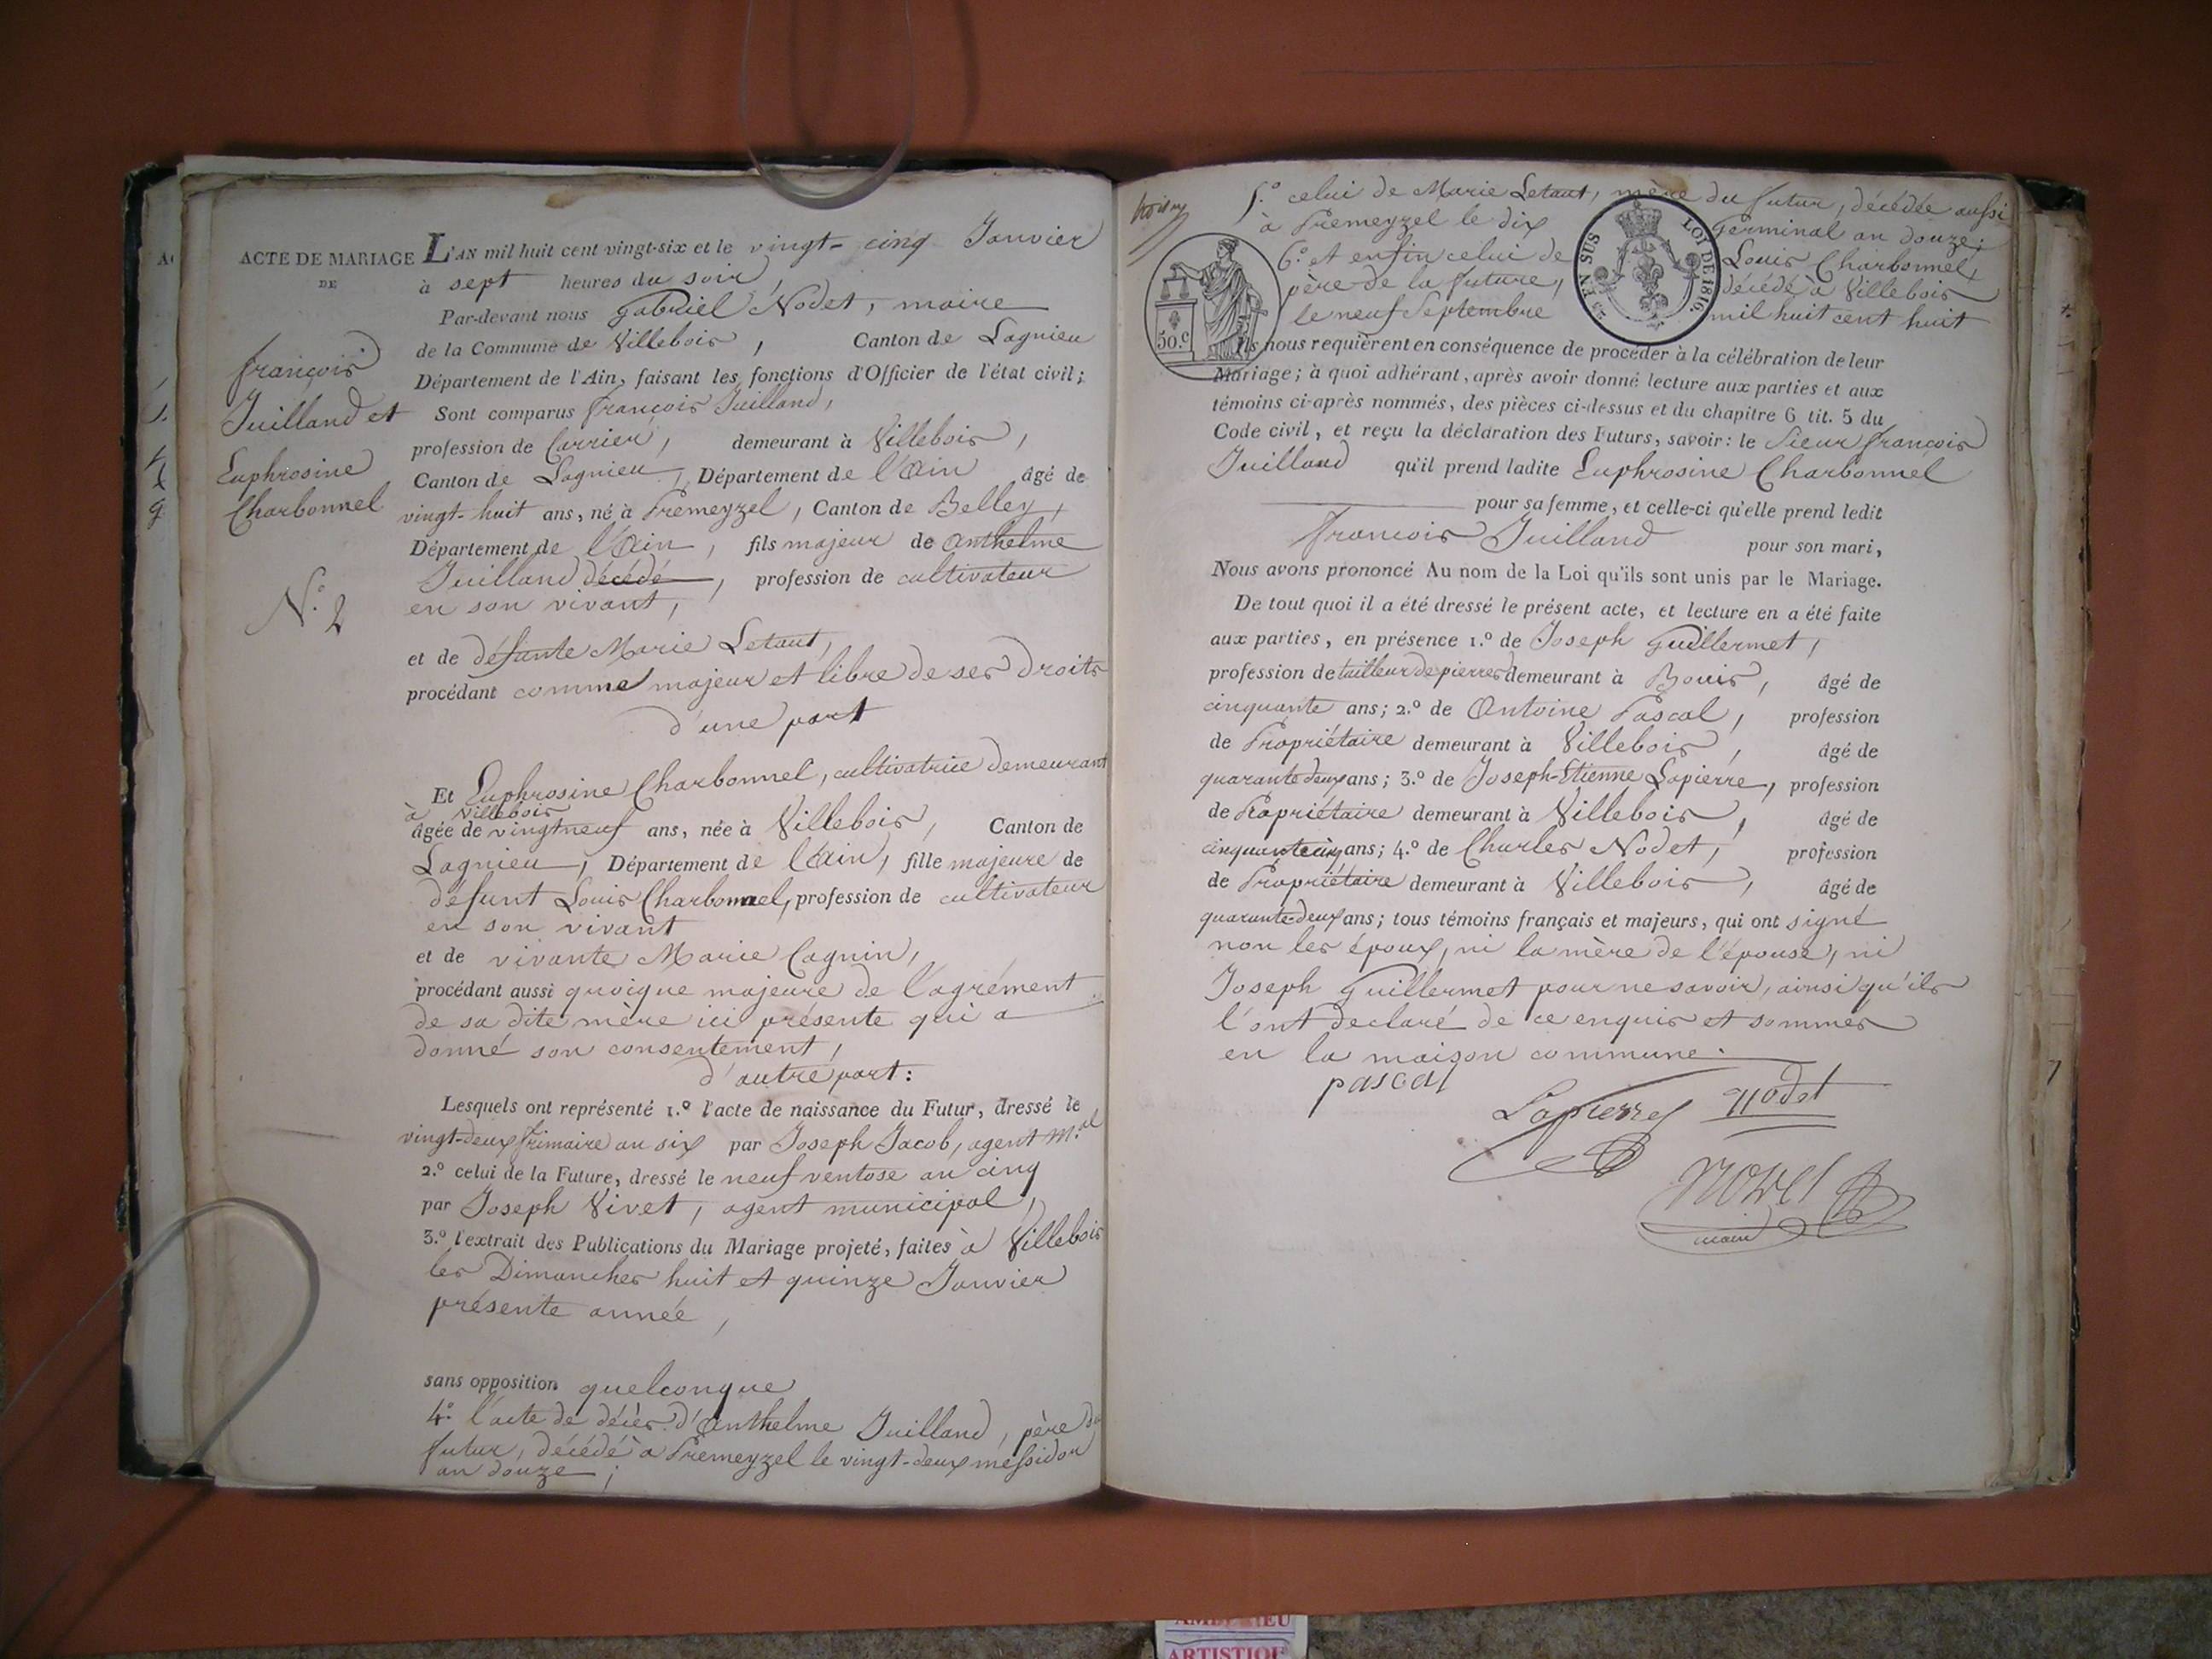 ACTE DE MARIAGE
DE
françois
Juilland et
Euphrosine
Charbonnel
N.º 2
L'AN mil huit cent vingt-six et le vingt-cinq Janvier
à sept heures du soir,
Par-devant nous gabriel Nodet, maire
de la Commune de Villebois, Canton de Lagnieu
Département de l'Ain, faisant les fonctions d'Officier de l'état civil;
Sont comparus françois Juilland,
profession de Carrier, demeurant à Villebois,
Canton de Lagnieu, Département de l'Ain âgé de
vingt-huit ans, né à Premeyzel, Canton de Belley,
Département de l'Ain, fils majeur de Anthelme
Juilland décédé, profession de cultivateur
en son vivant,
et de défunte Marie Letaut,
procédant comme majeur et libre de ses droits
d'une part
Et Euphrosine Charbonnel, cultivatrice demeurant
à Villebois
âgée de vingtneuf ans, née à Villebois, Canton de
Lagnieu, Département de l'Ain, fille majeure de
défunt Louis Charbonnel, profession de cultivateur
en son vivant
et de vivante Marie Cagnin,
procédant aussi quoique majeure de l'agrément
de sa dite mère ici présente qui a
donné son consentement,
d'autre part:
Lesquels ont représenté 1.º l'acte de naissance du Futur, dressé le
vingt-deux frimaire an six par Joseph Jacob, agent M.al
2.º celui de la Future, dressé le neuf ventose an cinq
par Joseph Vivet, agent municipal,
3.º l'extrait des Publications du Mariage projeté, faites à Villebois
les Dimanches huit et quinze Janvier
présente année,
sans opposition quelconque
4º l'acte de décès d'Anthelme Juilland, père du
futur, décédé à Premeyzel le vingt-deux messidor
an douze;
5.º celui de Marie Letaut, mère du futur, décédée aussi
à Premeyzel le dix Germinal an douze;
6.º et enfin celui de Louis Charbonnel,
père de la future, décédé à Villebois
le neuf Septembre mil huit cent huit
50.c
EN SUS
LOI DE 1816.
Ils nous requièrent en conséquence de procéder à la célébration de leur
Mariage; à quoi adhérant, après avoir donné lecture aux parties et aux
témoins ci-après nommés, des pièces ci-dessus et du chapitre 6 tit. 5 du
Code civil, et reçu la déclaration des Futurs, savoir: le Sieur françois
Juilland qu'il prend ladite Euphrosine Charbonnel
pour sa femme, et celle-ci qu'elle prend ledit
françois Juilland pour son mari,
Nous avons prononcé Au nom de la Loi qu'ils sont unis par le Mariage.
De tout quoi il a été dressé le présent acte, et lecture en a été faite
aux parties, en présence 1.º de Joseph Guillermet,
profession de tailleur de pierres demeurant à Bouis, âgé de
cinquante ans; 2.º de Antoine Pascal, profession
de Propriétaire demeurant à Villebois, âgé de
quarante deux ans; 3.º de Joseph-Etienne Lapierre, profession
de Propriétaire demeurant à Villebois, âgé de
ans; 4.º de Charles Nodet, profession
de Propriétaire demeurant à Villebois, âgé de
quarante-deux ans; tous témoins français et majeurs, qui ont signé
non les époux, ni la mère de l'épouse, ni
Joseph Guillermet pour ne savoir, ainsi qu'ils
l'ont declaré de ce enquis et sommés
en la maison commune.
pascal
Lapierre
Nodet
Nodet
maire
ARTISTIQUE